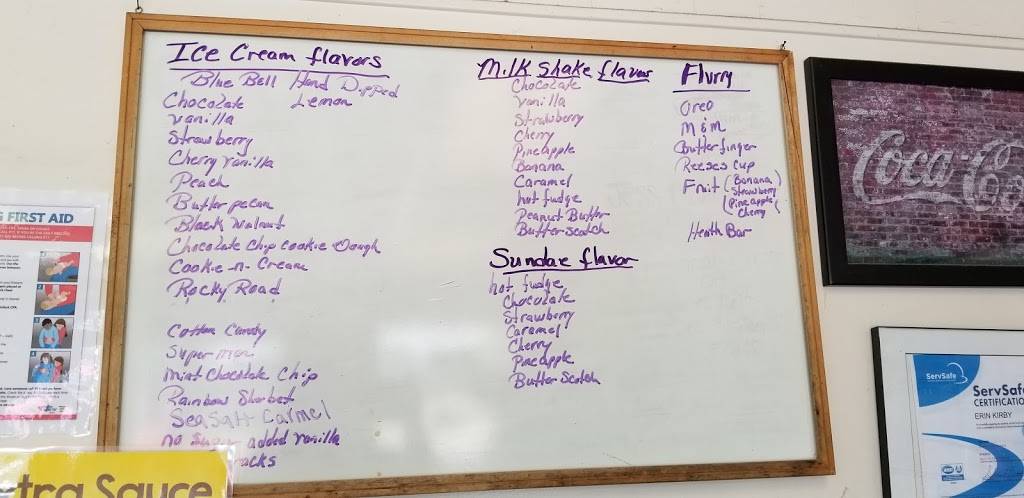 Ice Cream flavors
Blue Bell Hand Dipped
Chocolate Lemon
Vanilla
Strawberry
Cherry Vanilla
Peach
Butter pecan
Black Walnut
Chocolate Chip Cookie Dough
Cookie-n-Cream
Rocky Road
Cotton Candy
Superman
Mint Chocolate Chip
Rainbow Sherbet
Sea Salt Carmel
no Sugar added Vanilla
racks
Milk Shake flavor
Chocolate
Vanilla
Strawberry
Cherry
Pineapple
Banana
Caramel
hot fudge
Peanut Butter
Butterscotch
Sundae flavor
hot fudge
Chocolate
Strawberry
Caramel
Cherry
Pineapple
Butterscotch
Flurry
Oreo
M&M
Butterfinger
Reeses Cup
Fruit (Banana)
Strawberry
(Pineapple(
Cherry
Heath Bar
G FIRST AID
tra Sauce
Coca-Co
ServSafe
ServSafe
CERTIFICATIO
ERIN KIRBY